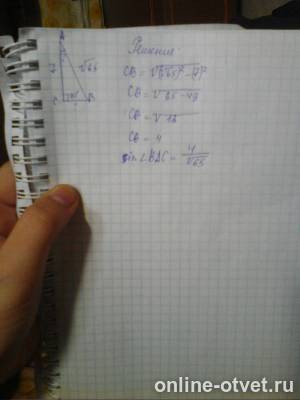 A
7
√65
C
B
Решение
CB = √(√65)² - (7)²
CB = √65 - 49
CB = √16
CB = 4
sin ∠BAC = 4/√65
online-otvet.ru